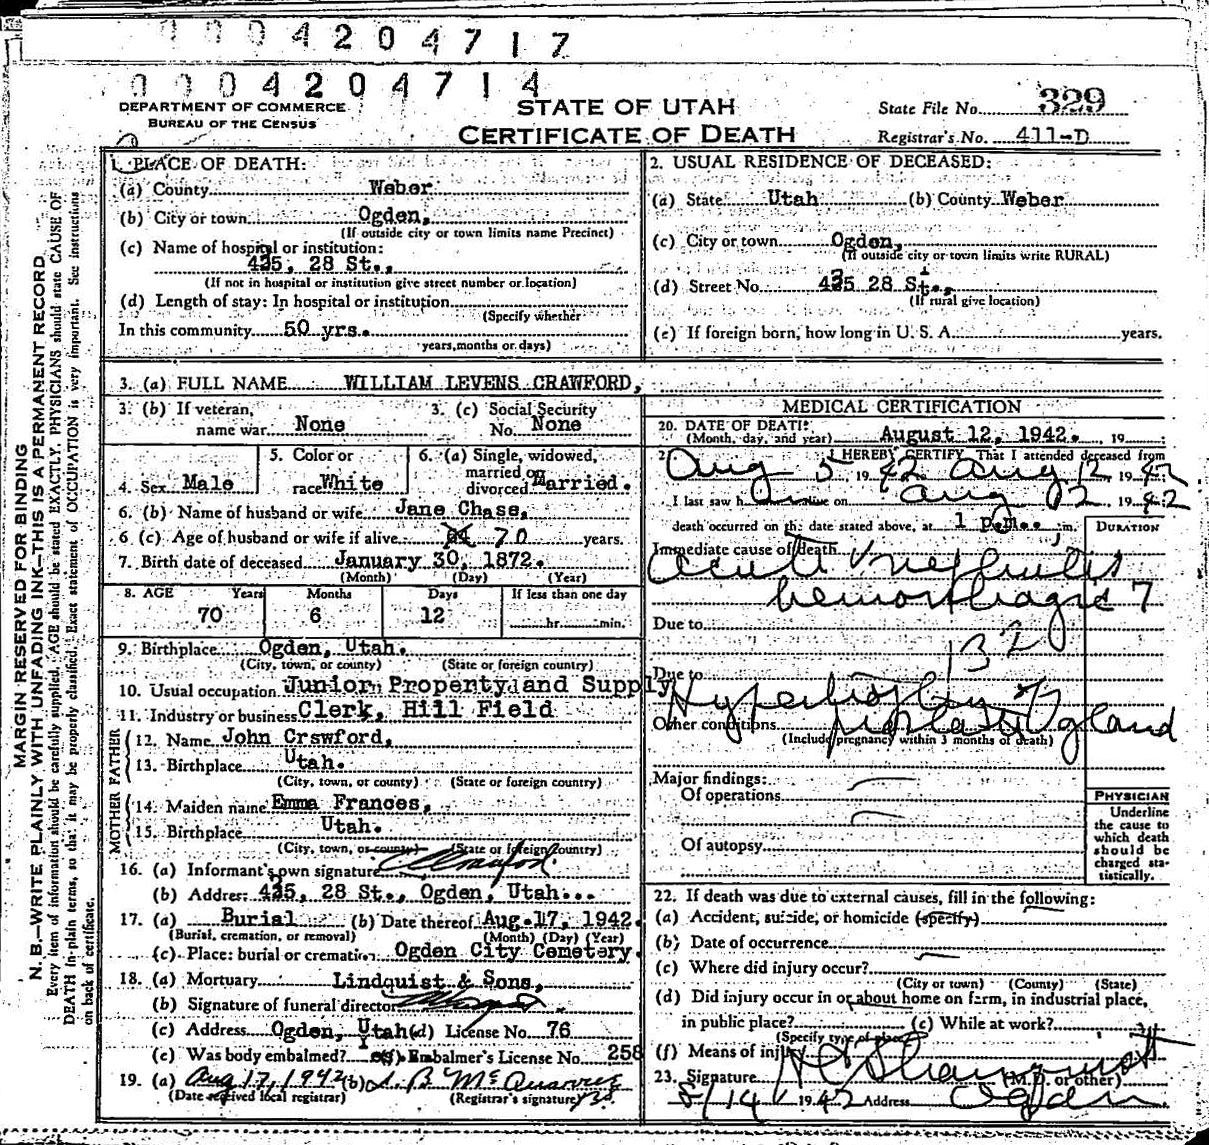 0004204717
0004204714
DEPARTMENT OF COMMERCE
BUREAU OF THE CENSUS
STATE OF UTAH
CERTIFICATE OF DEATH
State File No. 329
Registrar's No. 411-D
MARGIN RESERVED FOR BINDING
N. B.—WRITE PLAINLY WITH UNFADING INK—THIS IS A PERMANENT RECORD
Every item of information should be carefully supplied. AGE should be stated EXACTLY. PHYSICIANS should state CAUSE OF
DEATH in plain terms, so that it may be properly classified. Exact statement of OCCUPATION is very important. See instructions
on back of certificate.
1. PLACE OF DEATH:
(a) County Weber
(b) City or town Ogden,
(If outside city or town limits name Precinct)
(c) Name of hospital or institution:
425, 28 St.,
(If not in hospital or institution give street number or location)
(d) Length of stay: In hospital or institution
(Specify whether
In this community 50 yrs.
years, months or days)
2. USUAL RESIDENCE OF DECEASED:
(a) State Utah (b) County Weber
(c) City or town Ogden,
(If outside city or town limits write RURAL)
(d) Street No. 425 28 St.,
(If rural give location)
(e) If foreign born, how long in U. S. A. years.
3. (a) FULL NAME WILLIAM LEVENS CRAWFORD,
3. (b) If veteran,
name war None
3. (c) Social Security
No. None
4. Sex Male
5. Color or
race White
6. (a) Single, widowed,
married or
divorced Married.
6. (b) Name of husband or wife Jane Chase,
6 (c) Age of husband or wife if alive 70 years.
7. Birth date of deceased January 30, 1872.
(Month) (Day) (Year)
8. AGE Years Months Days If less than one day
70 6 12 hr. min.
9. Birthplace Ogden, Utah.
(City, town, or county) (State or foreign country)
10. Usual occupation Junior Property and Supply
11. Industry or business Clerk, Hill Field
FATHER
12. Name John Crswford,
13. Birthplace Utah.
(City, town, or county) (State or foreign country)
MOTHER
14. Maiden name Emma Frances,
15. Birthplace Utah.
(City, town, or county) (State or foreign country)
16. (a) Informant's own signature Crawford
(b) Address 425, 28 St., Ogden, Utah.
17. (a) Burial (b) Date thereof Aug. 17, 1942.
(Burial, cremation, or removal) (Month) (Day) (Year)
(c) Place: burial or cremation Ogden City Cemetery.
18. (a) Mortuary Lindquist & Sons,
(b) Signature of funeral director
(c) Address Ogden, Utah (d) License No. 76
(e) Was body embalmed? Yes Embalmer's License No. 258
19. (a) Aug 17, 1942 (b)
(Date received local registrar) (Registrar's signature)
MEDICAL CERTIFICATION
20. DATE OF DEATH:
(Month, day, and year) August 12, 1942. , 19
I HEREBY CERTIFY, That I attended deceased from
Aug 5, 1942 Aug 12 1942
I last saw h alive on Aug 12 1942
death occurred on the date stated above, at 1 p.m., m.
DURATION
Immediate cause of death
Acute nephritis
hemorrhagic 7
Due to
132
Due to
Hypertrophy of
Other conditions prostate gland
(Include pregnancy within 3 months of death)
Major findings:
Of operations
Of autopsy
PHYSICIAN
Underline
the cause to
which death
should be
charged sta-
tistically.
22. If death was due to external causes, fill in the following:
(a) Accident, suicide, or homicide (specify)
(b) Date of occurrence
(c) Where did injury occur?
(City or town) (County) (State)
(d) Did injury occur in or about home on farm, in industrial place,
in public place? (e) While at work?
(Specify type of place)
(f) Means of injury
23. Signature (M.D. or other)
8/14 1942 Address Ogden